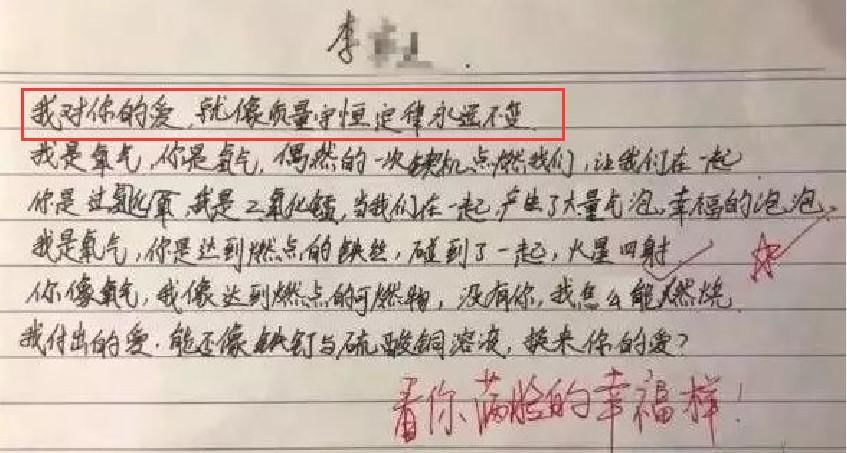 李
我对你的爱,就像质量守恒定律永远不变
我是氧气,你是氢气,偶然的一次契机点燃我们,让我们在一起
你是过氧化氢,我是二氧化锰,当我们在一起,产生了大量气泡,幸福的泡泡.
我是氧气,你是达到燃点的铁丝,碰到了一起,火星四射
你像氧气,我像达到燃点的可燃物,没有你,我怎么能燃烧
我付出的爱.能否像铁钉与硫酸铜溶液,换来你的爱?
看你满脸的幸福样!